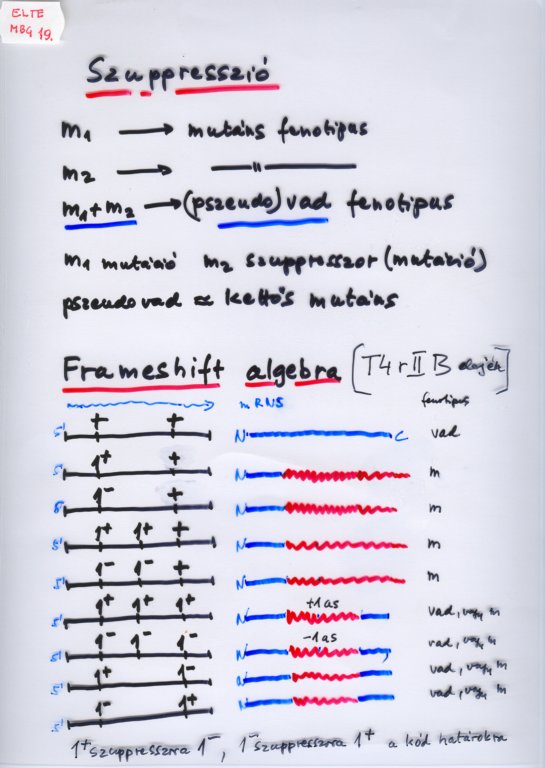 ELTE
MBG 19.
Szuppresszió
m1 → mutáns fenotipus
m2 → —— " ——
m1+m2 → (pszeudo) vad fenotipus
m1 mutáció m2 szuppresszor (mutáció)
pszeudovad ≈ kettős mutáns
Frameshift algebra [T4 r II B elején]
mRNS fenotipus
5' + + N C vad
5' 1+ + N m
5' 1- + N m
5' 1+ 1+ + N m
5' 1- 1- + N m
5' 1+ 1+ 1+ N +1 as vad, vagy m
5' 1- 1- 1- N -1 as vad, vagy m
5' 1+ 1- N vad, vagy m
5' 1- 1+ N vad, vagy m
1+ szuppresszora 1-, 1- szuppresszora 1+ a kód határokra